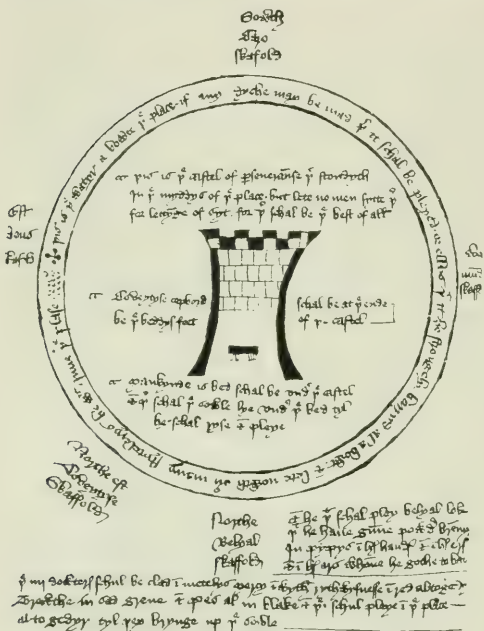 Sowth
Caro
skafold
þis is þe watyr a bowte þe place if any dyche may be mad þer it schal be pleyed or ellys þat it be strongely barryd al a bowt & lete nowth ovyr many stytelerys be wyth inne þe plase
þis is þe castel of perseueraunse þat stondyth
In þe myddys of þe place but lete no men sytte þer
for lettynge of syt for þer schal be þe best of all
Est
deus
skafold
skaffold
Coveytyse copbord
be þe beddys feet
schal be at þe ende
of þe castel
Mankynde is bed schal be vndyr þe castel
& þer schal þe sowle lye vndyr þe bed tyl
he schal ryse & pleye
Northe est
Coveytyse
Skaffold
Northe
Belyal
skaffold
& he þat schal pley belyal loke
þat he haue gunne powdyr brennyng
In pypys in his handis & in his eris
& in his ars whanne he gothe to
þe iiij dowterys schul be clad in mentelys Mercy in wyth rythwysnesse in red altogedyr
Trewthe in sad grene & Pes al in blake & þei schul pleye in þe place
al to gedyr tyl þey brynge up þe sowle